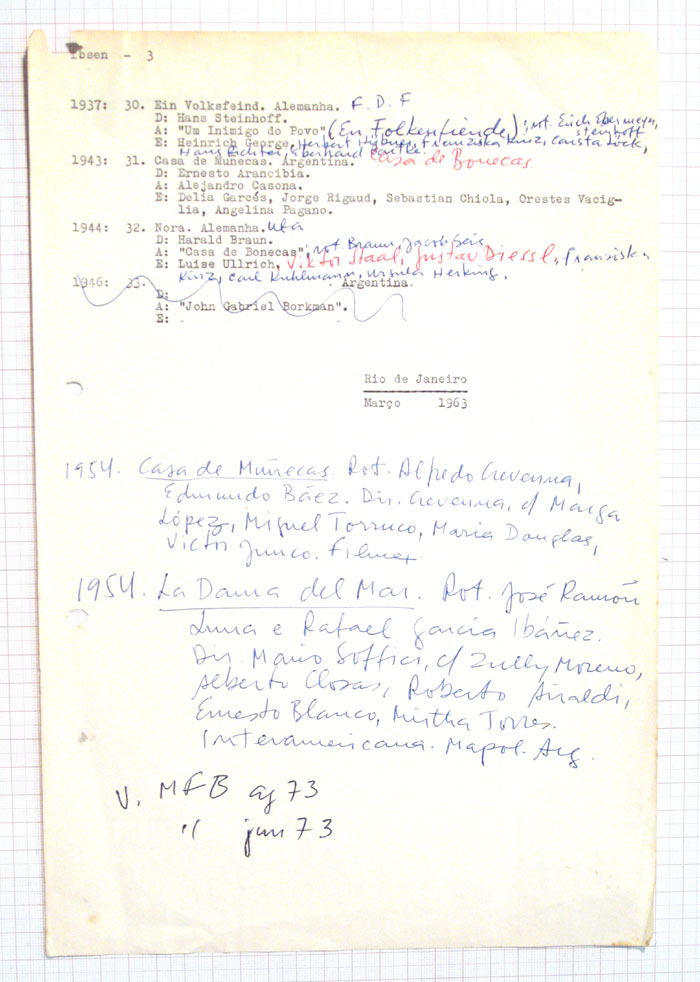 Ibsen - 3
1937: 30. Ein Volksfeind. Alemanha. F. D. F
D: Hans Steinhoff.
A: "Um Inimigo do Povo" (En Folkenfiende); rot. Erich Ebermayer, Steinhoff
E: Heinrich George, Herbert Hübner, Franziska Kinz, Carsta Löck,
Hans Richter, Eberhard
1943: 31. Casa de Muñecas. Argentina. Casa de Bonecas
D: Ernesto Arancibia.
A: Alejandro Casona.
E: Delia Garcés, Jorge Rigaud, Sebastian Chiola, Orestes Vacig-
lia, Angelina Pagano.
1944: 32. Nora. Alemanha. Ufa
D: Harald Braun.
A: "Casa de Bonecas", rot. Braun,
E: Luise Ullrich, Viktor Staal, Gustav Diessl, Franziska
Kinz, Carl Kuhlmann, Ursula Herking.
1946: 33. Argentina.
D:
A: "John Gabriel Borkman".
E: .
Rio de Janeiro
Março 1963
1954. Casa de Muñecas. Rot. Alfredo Crevenna,
Edmundo Báez. Dir. Crevenna, c/ Marga
López, Miguel Torruco, Maria Douglas,
Victor Junco. Filmex.
1954. La Dama del Mar. Rot. José Ramón
Luna e Rafael García Ibáñez.
Dir. Mario Soffici, c/ Zully Moreno,
Alberto Closas, Roberto Airaldi,
Ernesto Blanco, Mirtha Torres.
Interamericana. Mapol. Arg.
V. MFB ag 73
" jun 73